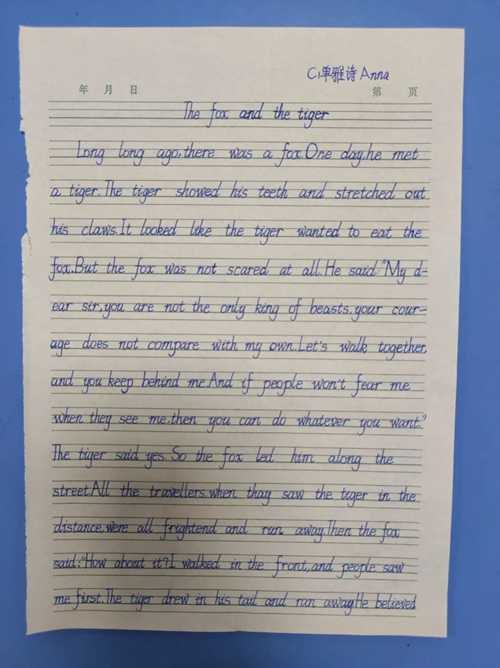 C1单雅诗 Anna
年 月 日 第 页
The fox and the tiger
Long long ago,there was a fox.One day,he met
a tiger.The tiger showed his teeth and stretched out
his claws.It looked like the tiger wanted to eat the
fox.But the fox was not scared at all.He said:"My d-
ear sir,you are not the only king of beasts.your cour-
age does not compare with my own.Let's walk together,
and you keep behind me.And if people won't fear me
when they see me,then you can do whatever you want."
The tiger said yes.So the fox led him along the
street.All the travellers,when thay saw the tiger in the
distance,were all frightend and run away.Then the fox
said:"How about it?I walked in the front,and people saw
me first.The tiger drew in his tail and ran away.He believed